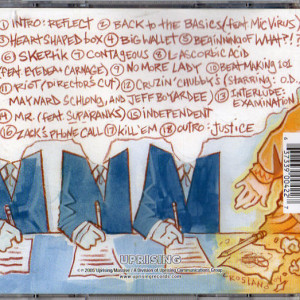 ① INTRO: REFLECT ② BACK TO THE BASICS (FEAT MIC VIRUS)
③ HEART SHAPED BOX ④ BIG WALLET ⑤ BEGINNING OF WHAT?!?
⑥ SKERIK ⑦ CONTAGEOUS ⑧ L-ASCORBIC ACID
(FEAT EYEDEA, CARNAGE) ⑨ NO MORE LADY ⑩ BEAT MAKING 101
⑪ RIOT (DIRECTOR'S CUT) ⑫ CRUZIN' CHUBBY'S (STARRING: O.D.,
MAYNARD SCHLONG, AND JEFF BOYARDEE) ⑬ INTERLUDE:
EXAMINATION
⑭ MR. (FEAT SUPARANKS) ⑮ INDEPENDENT
⑯ ZACK'S PHONE CALL ⑰ KILL 'EM ⑱ OUTRO: JUSTICE
37339 00422
UPRISING
www.uprisingrecords.com